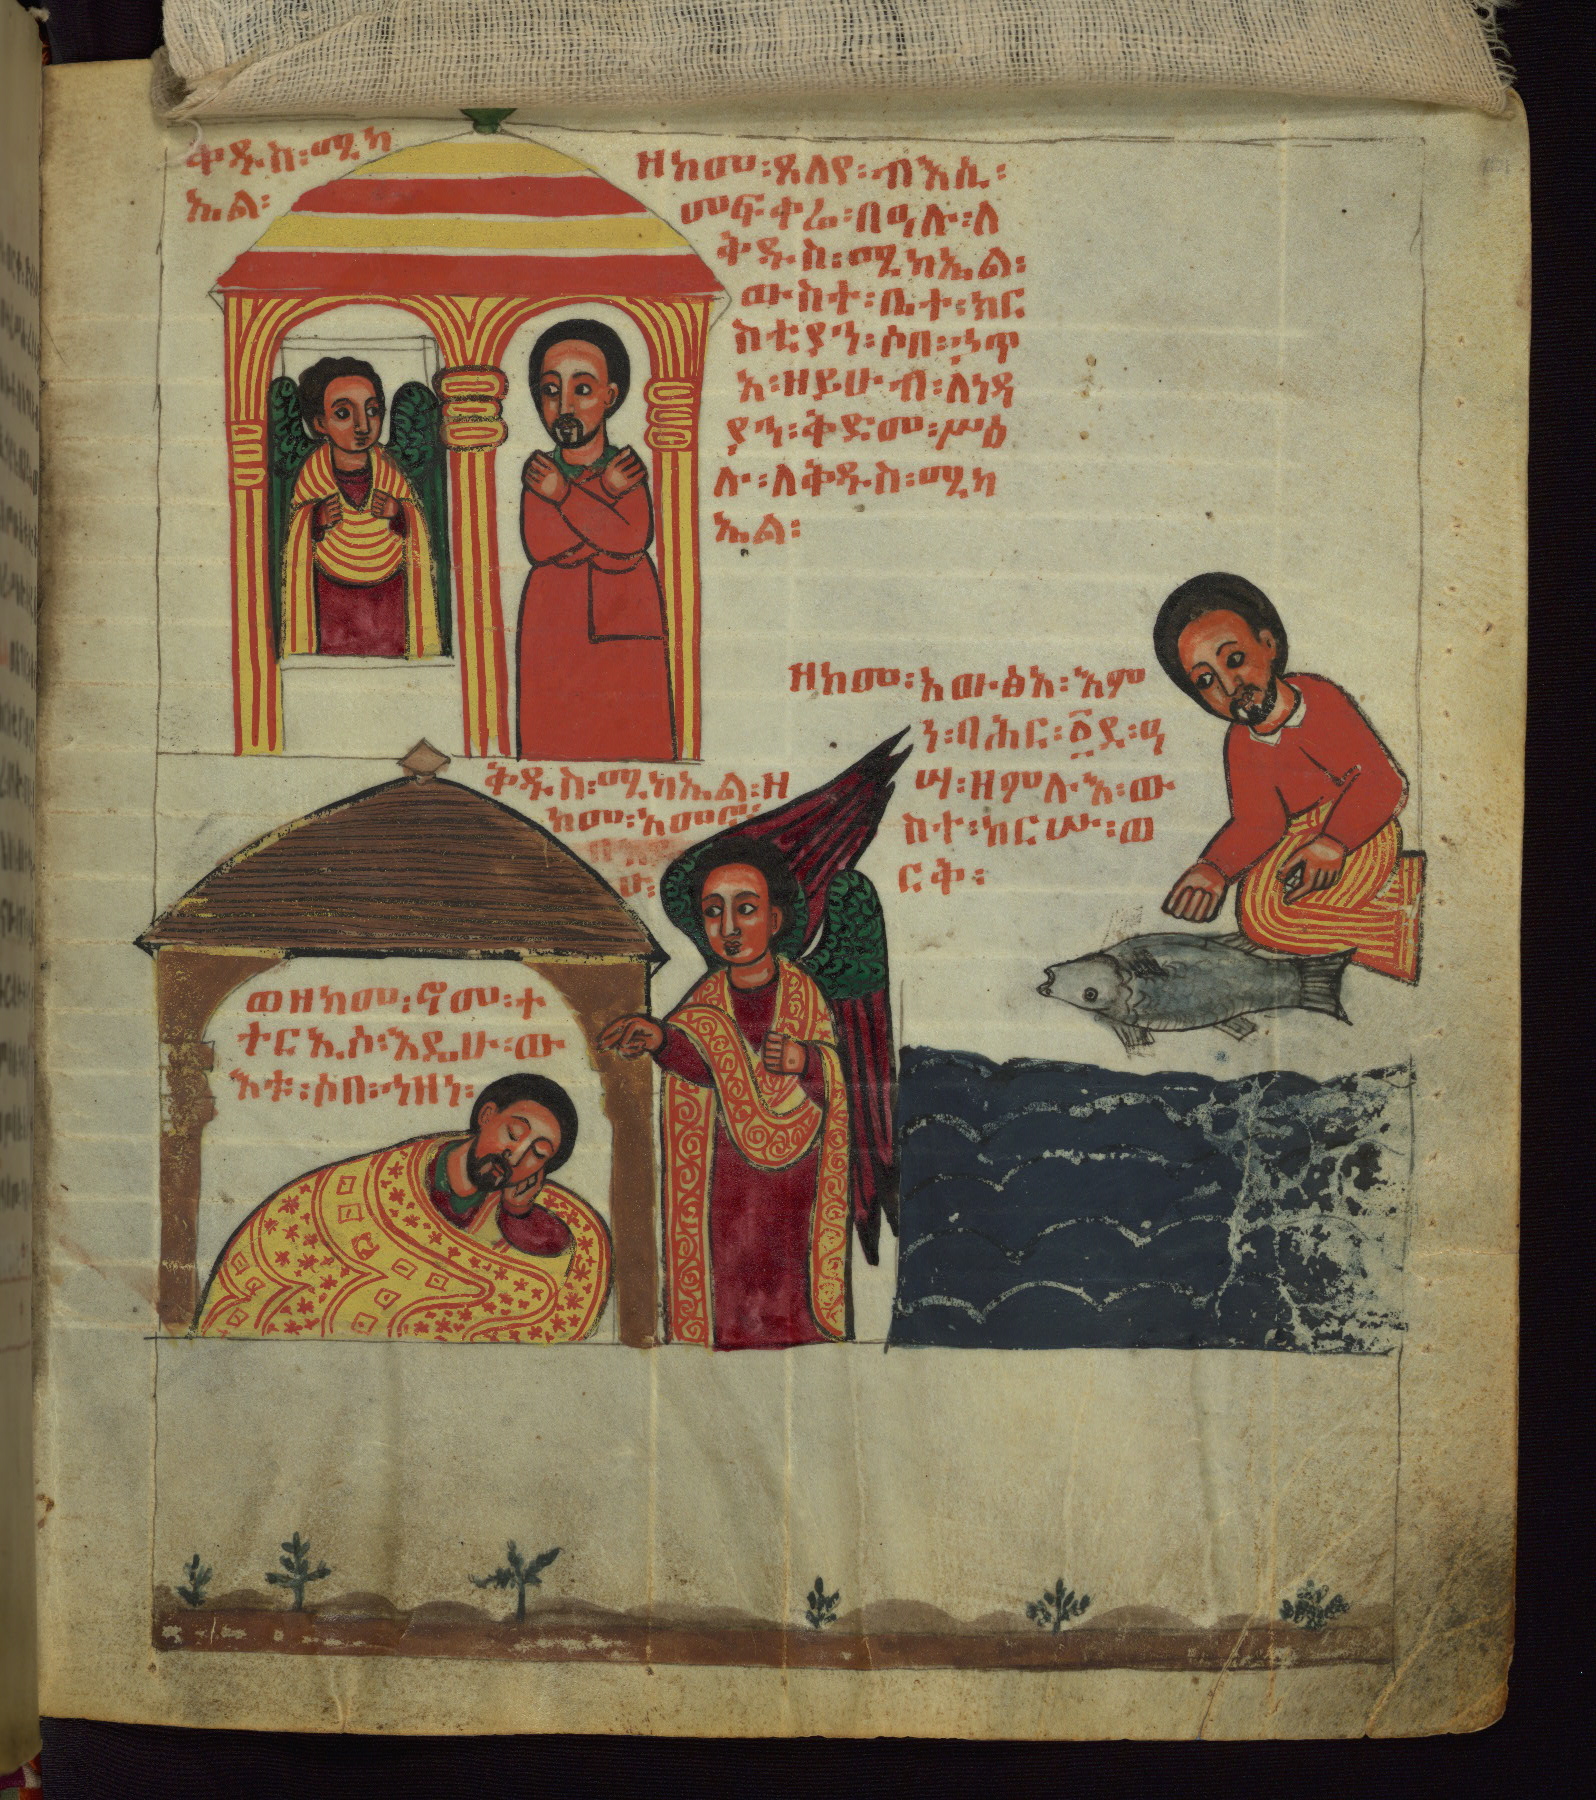 ቅዱስ፡ሚካ
ኤል፡
ዘከመ፡ጸለየ፡ብእሲ፡
መፍቀሬ፡በዓሉ፡ለ
ቅዱስ፡ሚካኤል፡
ውስተ፡ቤተ፡ክር
ስቲያን፡ሶበ፡ኃጥ
አ፡ዘይሁብ፡ለነዳ
ያን፡ቅድመ፡ሥዕ
ሉ፡ለቅዱስ፡ሚካ
ኤል፡
ዘከመ፡አውፅአ፡እም
ነ፡ባሕር፡፩ደ፡ዓ
ሣ፡ዘምሉእ፡ው
ስተ፡ከርሡ፡ወ
ርቅ፡
ቅዱስ፡ሚካኤል፡ዘ
ከመ፡አመሮ፡
ሁ፡
ወዘከመ፡ኖመ፡ተ
ተርኢሶ፡እዴሁ፡ው
እቱ፡ሶበ፡ኀዘነ፡